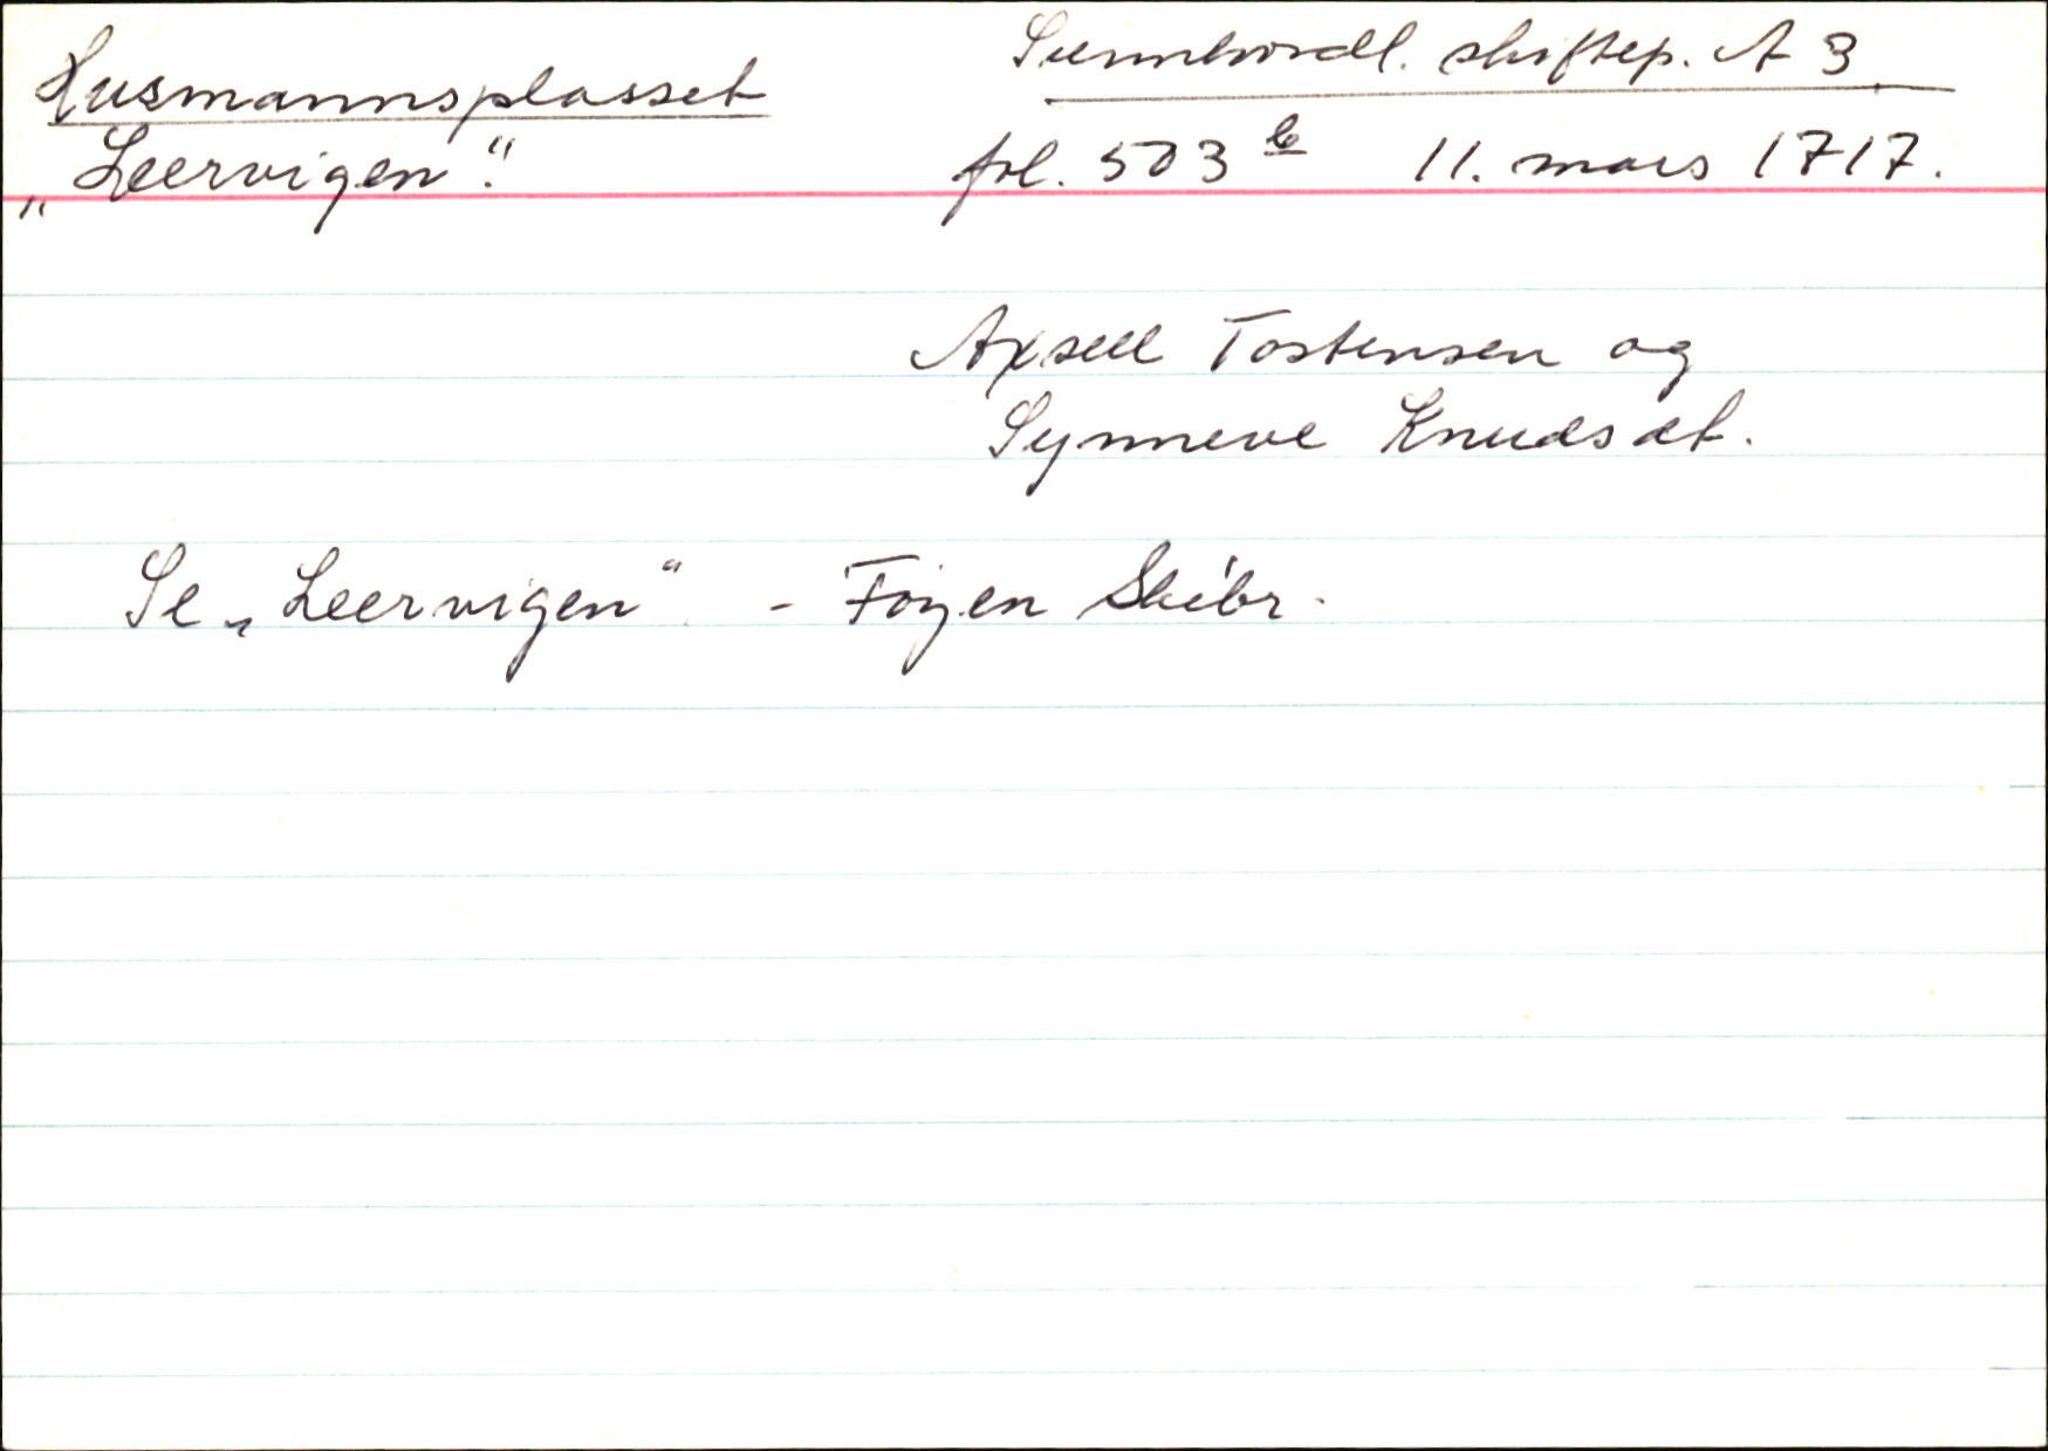 Husmannsplasset
„Leervigen“.
Sunnhordl. skiftep. A 3
fol. 503 b 11. mars 1717.
Axsell Tostensen og
Synneve Knudsdt.
Se „Leervigen“ - Föyen Skibr.